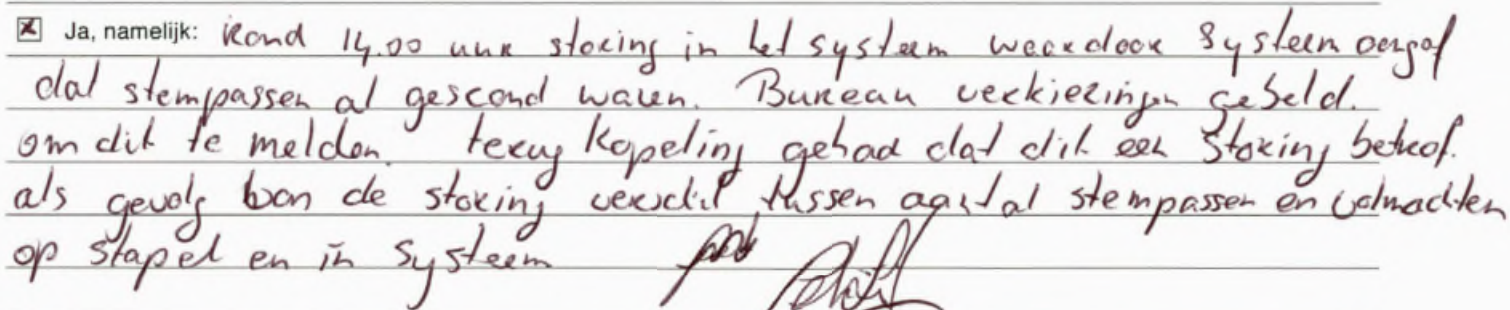 Ja, namelijk: Rond 14.00 uur storing in het systeem waardoor systeem aangaf
dat stempassen al gescand waren. Bureau verkiezingen gebeld.
om dit te melden. terug kopeling gehad dat dit een storing betrof.
als gevolg van de storing verschil tussen aantal stempassen en volmachten
op stapel en in systeem